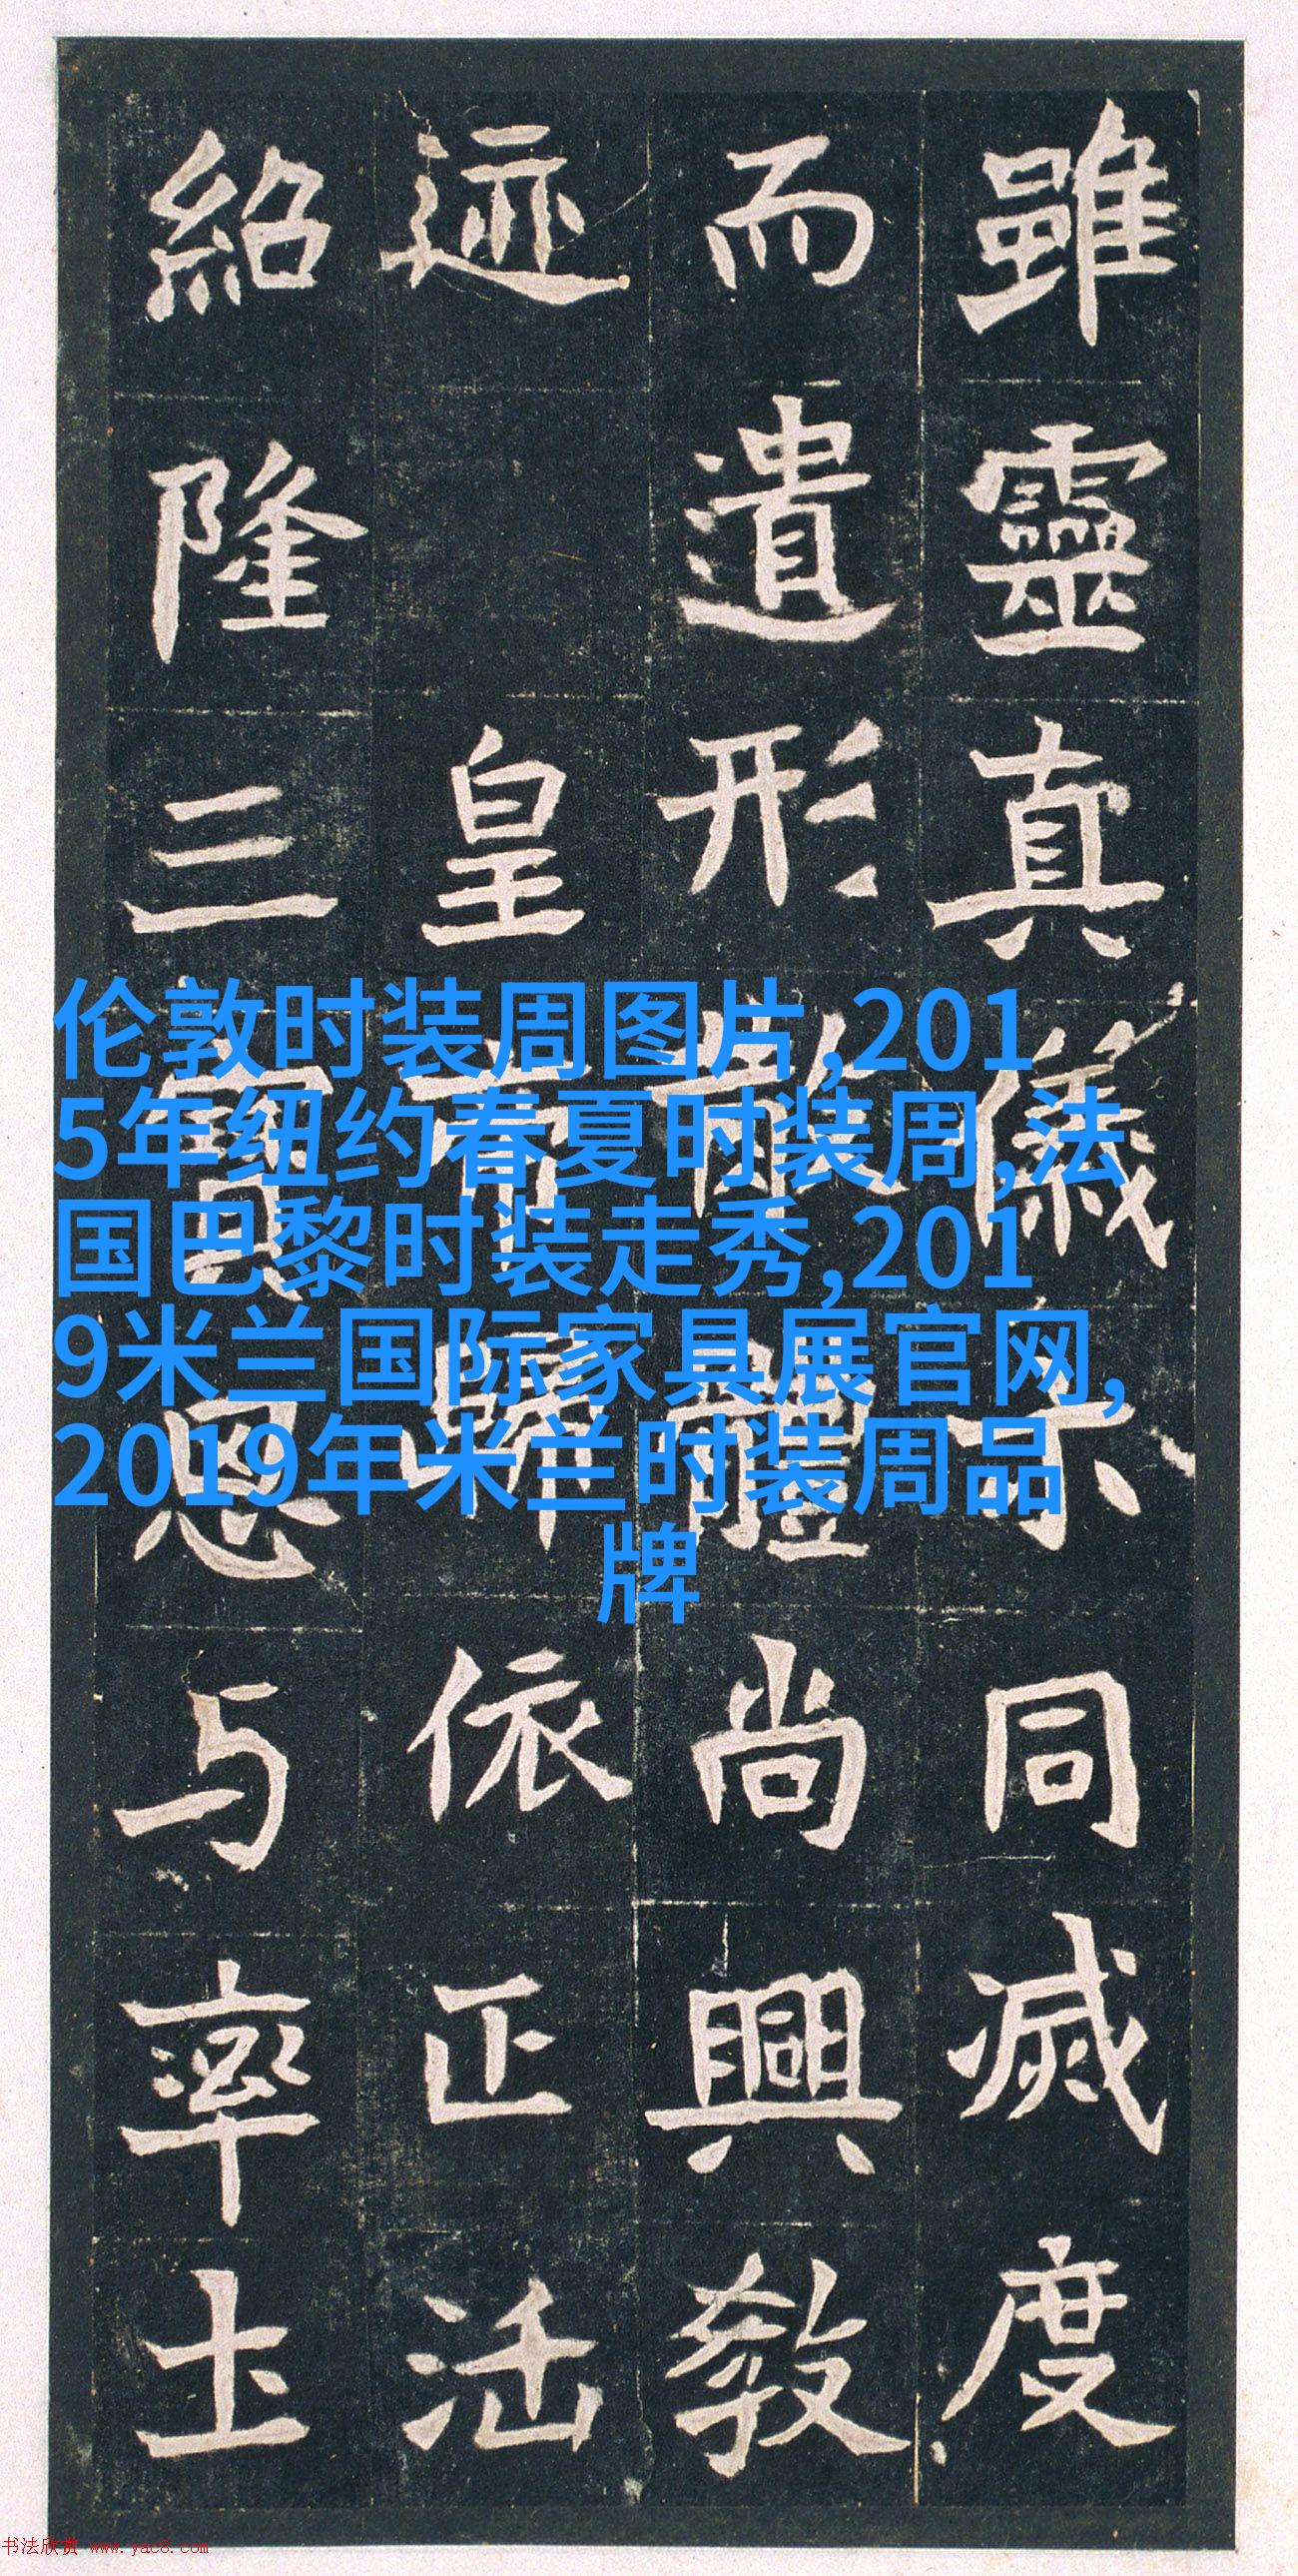 雖靈真儀示同滅度
而遺形散體尚興教
迹 皇帝歸依正法
紹隆三寶思与率土
伦敦时装周图片,201
5年纽约春夏时装周,法
国巴黎时装走秀,201
9米兰国际家具展官网,
2019年米兰时装周品
牌
书法欣赏 www.yac8.com